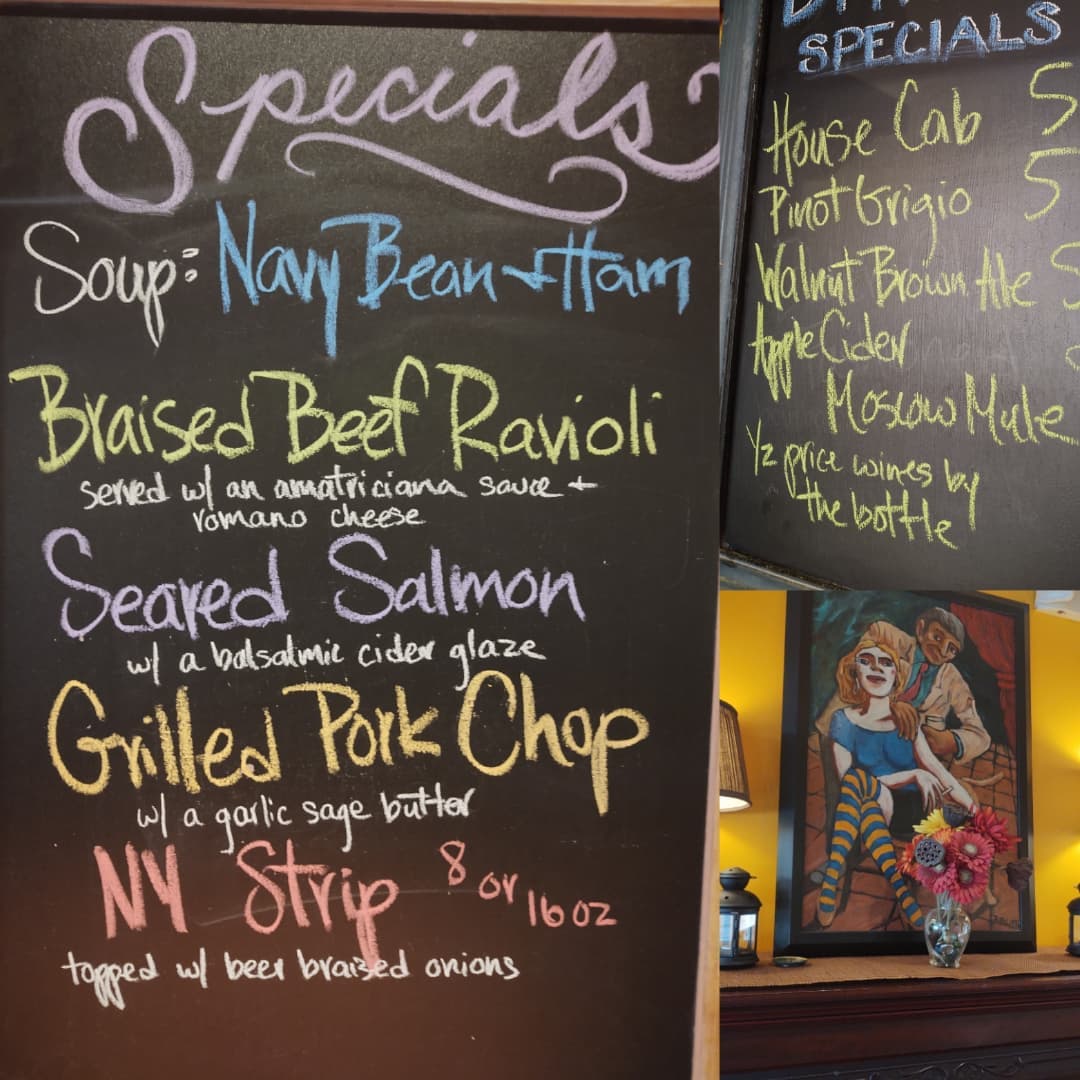 Specials
Soup: Navy Bean + Ham
Braised Beef Ravioli
served w/ an amatriciana sauce +
romano cheese
Seared Salmon
w/ a balsalmic cider glaze
Grilled Pork Chop
w/ a garlic sage butter
NY Strip 8 or 16 oz
topped w/ beer braized onions
SPECIALS
House Cab 5
Pinot Grigio 5
Walnut Brown Ale
Apple Cider
Moscow Mule
1/2 price wines by
the bottle